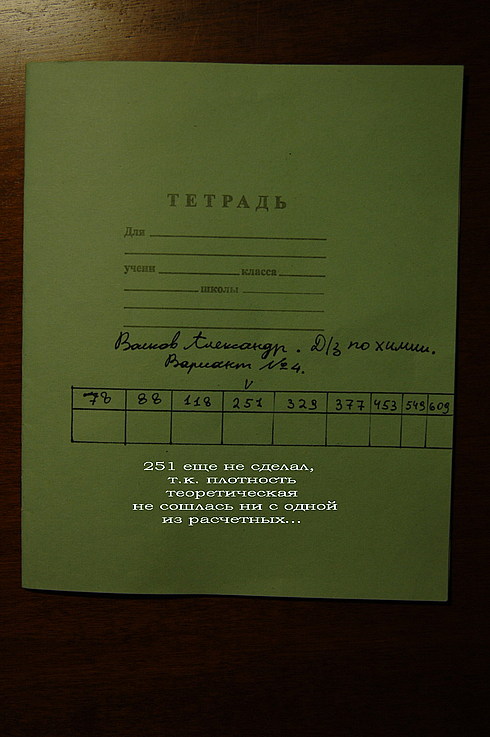 ТЕТРАДЬ
Для
учени класса
школы
Волков Александр. Д/з по химии.
Вариант №4.
V
78 88 118 251 329 377 453 549 609
251 еще не сделал,
т.к. плотность
теоретическая
не сошлась ни с одной
из расчетных...